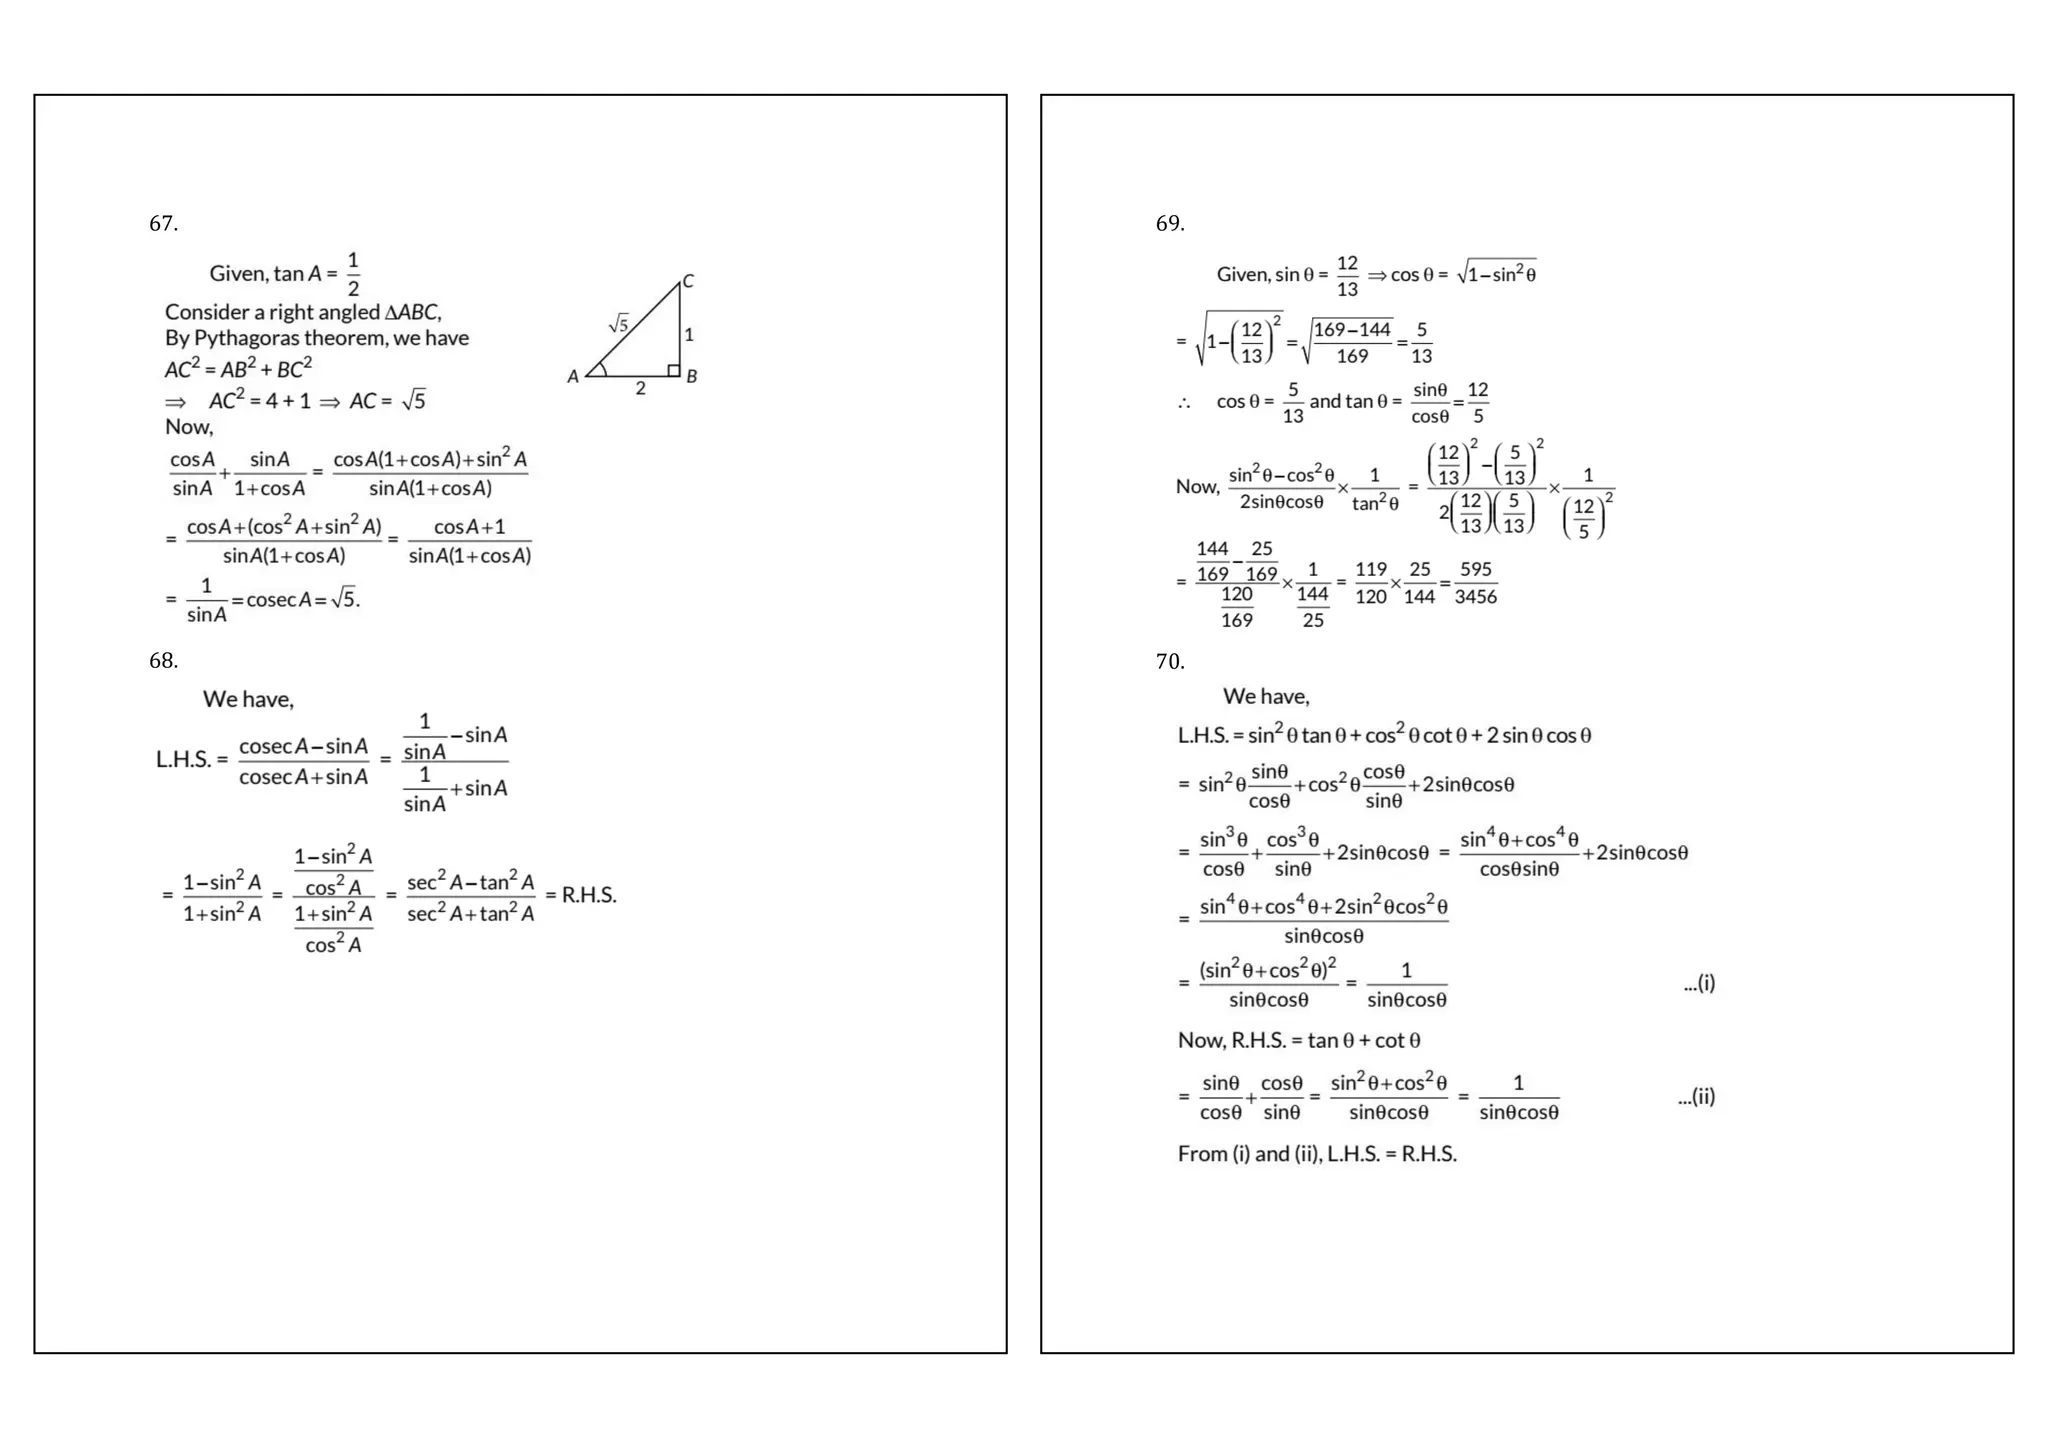 67.
Given, tan A = 1/2
Consider a right angled ∆ABC,
By Pythagoras theorem, we have
AC² = AB² + BC²
⇒ AC² = 4 + 1 ⇒ AC = √5
Now,
cosA/sinA + sinA/(1+cosA) = (cosA(1+cosA)+sin²A)/(sinA(1+cosA))
= (cosA+(cos²A+sin²A))/(sinA(1+cosA)) = (cosA+1)/(sinA(1+cosA))
= 1/sinA = cosecA = √5.
C
√5
1
A
2
B
68.
We have,
L.H.S. = (cosecA−sinA)/(cosecA+sinA) = (1/sinA −sinA)/(1/sinA +sinA)
= (1−sin²A)/(1+sin²A) = ((1−sin²A)/cos²A)/((1+sin²A)/cos²A) = (sec²A−tan²A)/(sec²A+tan²A) = R.H.S.
69.
Given, sin θ = 12/13 ⇒ cos θ = √(1−sin²θ)
= √(1−(12/13)²) = √((169−144)/169) = 5/13
∴ cos θ = 5/13 and tan θ = sinθ/cosθ = 12/5
Now, (sin²θ−cos²θ)/(2sinθcosθ) × 1/tan²θ = ((12/13)²−(5/13)²)/(2(12/13)(5/13)) × 1/(12/5)²
= (144/169 − 25/169)/(120/169) × 1/(144/25) = 119/120 × 25/144 = 595/3456
70.
We have,
L.H.S. = sin² θ tan θ + cos² θ cot θ + 2 sin θ cos θ
= sin²θ sinθ/cosθ + cos²θ cosθ/sinθ + 2sinθcosθ
= sin³θ/cosθ + cos³θ/sinθ + 2sinθcosθ = (sin⁴θ+cos⁴θ)/(cosθsinθ) + 2sinθcosθ
= (sin⁴θ+cos⁴θ+2sin²θcos²θ)/(sinθcosθ)
= (sin²θ+cos²θ)²/(sinθcosθ) = 1/(sinθcosθ) ...(i)
Now, R.H.S. = tan θ + cot θ
= sinθ/cosθ + cosθ/sinθ = (sin²θ+cos²θ)/(sinθcosθ) = 1/(sinθcosθ) ...(ii)
From (i) and (ii), L.H.S. = R.H.S.